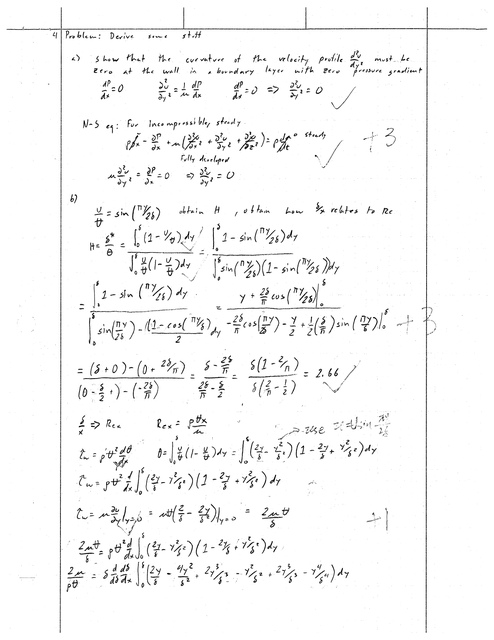 4 Problem: Derive some stuff
a) show that the curvature of the velocity profile ∂²u/∂y² must be
zero at the wall in a boundary layer with zero pressure gradient
dP/dx = 0 ∂²u/∂y² = 1/μ dP/dx dP/dx = 0 ⇒ ∂²u/∂y² = 0
N-S eq: For incompressible, steady
ρg_x - ∂P/∂x + μ(∂²u/∂x² + ∂²u/∂y² + ∂²u/∂z²) = ρ du/dt 0 steady
+3
Fully developed
μ ∂²u/∂y² = ∂P/∂x = 0 ⇒ ∂²u/∂y² = 0
b)
u/U = sin(πy/2δ) obtain H , obtain how δ/x relates to Re
H = δ*/θ = ∫₀^δ (1 - u/U) dy / ∫₀^δ u/U (1 - u/U) dy = ∫₀^δ 1 - sin(πy/2δ) dy / ∫₀^δ sin(πy/2δ)(1 - sin(πy/2δ)) dy
= ∫₀^δ 1 - sin(πy/2δ) dy / ∫₀^δ sin(πy/2δ) - (1 - cos(πy/δ))/2 dy = y + 2δ/π cos(πy/2δ)|₀^δ / -2δ/π cos(πy/2δ) - y/2 + 1/2(δ/π) sin(πy/δ)|₀^δ
+3
= (δ + 0) - (0 + 2δ/π) / (0 - δ/2 + ) - (-2δ/π) = δ - 2δ/π / 2δ/π - δ/2 = δ(1 - 2/π) / δ(2/π - 1/2) = 2.66
δ/x ⇒ Re_x Re_x = ρUx/μ
use
τ_w = ρU² dθ/dx θ = ∫₀^δ u/U (1 - u/U) dy = ∫₀^δ (2y/δ - y²/δ²)(1 - 2y/δ + y²/δ²) dy
τ_w = ρU² d/dx ∫₀^δ (2y/δ - y²/δ²)(1 - 2y/δ + y²/δ²) dy
τ_w = μ ∂u/∂y|y=0 = μU(2/δ - 2y/δ²)|y=0 = 2μU/δ
+1
2μU/δ = ρU² d/dx ∫₀^δ (2y/δ - y²/δ²)(1 - 2y/δ + y²/δ²) dy
2μ/ρU = δ d/dδ dδ/dx ∫₀^δ (2y/δ - 4y²/δ² + 2y³/δ³ - y²/δ² + 2y³/δ³ - y⁴/δ⁴) dy